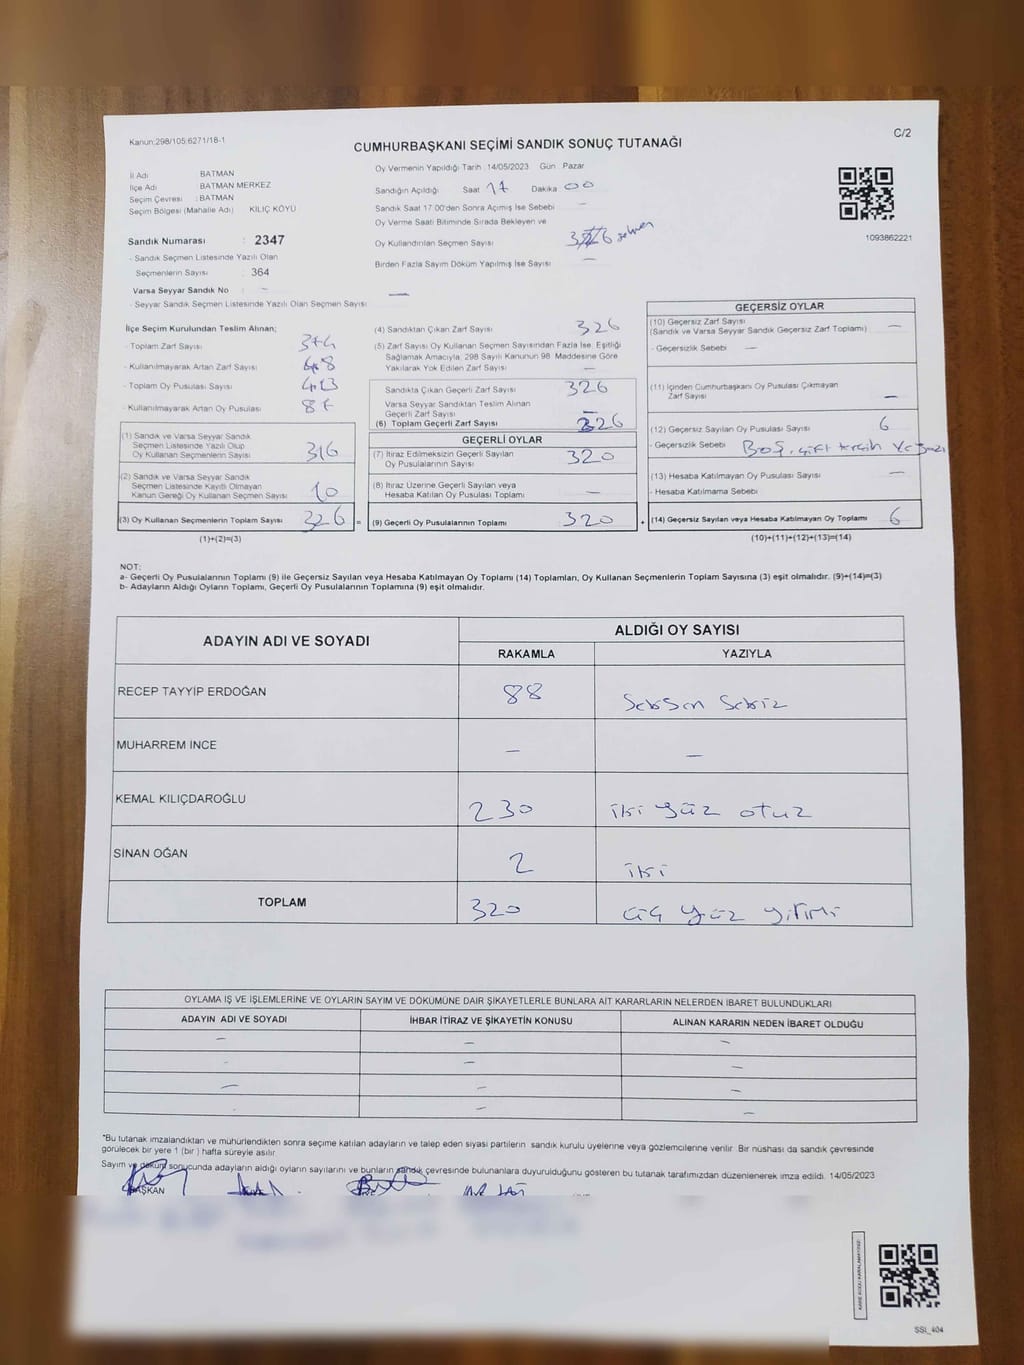 Kanun:298/105:6271/18-1
C/2
CUMHURBAŞKANI SEÇİMİ SANDIK SONUÇ TUTANAĞI
İl Adı BATMAN
İlçe Adı BATMAN MERKEZ
Seçim Çevresi : BATMAN
Seçim Bölgesi (Mahalle Adı) KILIÇ KÖYÜ
Oy Vermenin Yapıldığı Tarih : 14/05/2023 Gün : Pazar
Sandığın Açıldığı Saat 17 Dakika 00
Sandık Saat 17:00'den Sonra Açımış İse Sebebi –
Oy Verme Saati Bitiminde Sırada Bekleyen ve
Oy Kullandırılan Seçmen Sayısı
Birden Fazla Sayım Döküm Yapılmış İse Sayısı –
1093862221
Sandık Numarası : 2347
- Sandık Seçmen Listesinde Yazılı Olan
Seçmenlerin Sayısı : 364
Varsa Seyyar Sandık No : –
- Seyyar Sandık Seçmen Listesinde Yazılı Olan Seçmen Sayısı –
İlçe Seçim Kurulundan Teslim Alınan;
- Toplam Zarf Sayısı 374
- Kullanılmayarak Artan Zarf Sayısı 48
- Toplam Oy Pusulası Sayısı 413
- Kullanılmayarak Artan Oy Pusulası 87
(1) Sandık ve Varsa Seyyar Sandık
Seçmen Listesinde Yazılı Olup
Oy Kullanan Seçmenlerin Sayısı 316
(2) Sandık ve Varsa Seyyar Sandık
Seçmen Listesinde Kayıtlı Olmayan
Kanun Gereği Oy Kullanan Seçmen Sayısı 10
(3) Oy Kullanan Seçmenlerin Toplam Sayısı 326 =
(1)+(2)=(3)
(4) Sandıktan Çıkan Zarf Sayısı 326
(5) Zarf Sayısı Oy Kullanan Seçmen Sayısından Fazla İse, Eşitliği
Sağlamak Amacıyla, 298 Sayılı Kanunun 98. Maddesine Göre
Yakılarak Yok Edilen Zarf Sayısı –
Sandıkta Çıkan Geçerli Zarf Sayısı 326
Varsa Seyyar Sandıktan Teslim Alınan
Geçerli Zarf Sayısı –
(6) Toplam Geçerli Zarf Sayısı 326
GEÇERLİ OYLAR
(7) İtiraz Edilmeksizin Geçerli Sayılan
Oy Pusulalarının Sayısı 320
(8) İtiraz Üzerine Geçerli Sayılan veya
Hesaba Katılan Oy Pusulası Toplamı –
(9) Geçerli Oy Pusulalarının Toplamı 320 +
GEÇERSİZ OYLAR
(10) Geçersiz Zarf Sayısı
(Sandık ve Varsa Seyyar Sandık Geçersiz Zarf Toplamı) –
- Geçersizlik Sebebi –
(11) İçinden Cumhurbaşkanı Oy Pusulası Çıkmayan
Zarf Sayısı –
(12) Geçersiz Sayılan Oy Pusulası Sayısı 6
- Geçersizlik Sebebi Boş, çift tercih
(13) Hesaba Katılmayan Oy Pusulası Sayısı –
- Hesaba Katılmama Sebebi
(14) Geçersiz Sayılan veya Hesaba Katılmayan Oy Toplamı 6
(10)+(11)+(12)+(13)=(14)
NOT:
a- Geçerli Oy Pusulalarının Toplamı (9) ile Geçersiz Sayılan veya Hesaba Katılmayan Oy Toplamı (14) Toplamları, Oy Kullanan Seçmenlerin Toplam Sayısına (3) eşit olmalıdır. (9)+(14)=(3)
b- Adayların Aldığı Oyların Toplamı, Geçerli Oy Pusulalarının Toplamına (9) eşit olmalıdır.
ADAYIN ADI VE SOYADI
ALDIĞI OY SAYISI
RAKAMLA YAZIYLA
RECEP TAYYİP ERDOĞAN 88 Seksen Sekiz
MUHARREM İNCE – –
KEMAL KILIÇDAROĞLU 230 iki yüz otuz
SİNAN OĞAN 2 iki
TOPLAM 320 üç yüz yirmi
OYLAMA İŞ VE İŞLEMLERİNE VE OYLARIN SAYIM VE DÖKÜMÜNE DAİR ŞİKAYETLERLE BUNLARA AİT KARARLARIN NELERDEN İBARET BULUNDUKLARI
ADAYIN ADI VE SOYADI İHBAR İTİRAZ VE ŞİKAYETİN KONUSU ALINAN KARARIN NEDEN İBARET OLDUĞU
– – –
– – –
– – –
– – –
"Bu tutanak imzalandıktan ve mühürlendikten sonra seçime katılan adayların ve talep eden siyasi partilerin sandık kurulu üyelerine veya gözlemcilerine verilir. Bir nüshası da sandık çevresinde
görülecek bir yere 1 (bir ) hafta süreyle asılır.
Sayım ve döküm sonucunda adayların aldığı oyların sayılarını ve bunların sandık çevresinde bulunanlara duyurulduğunu gösteren bu tutanak tarafımızdan düzenlenerek imza edildi. 14/05/2023
BAŞKAN
SSİ_404